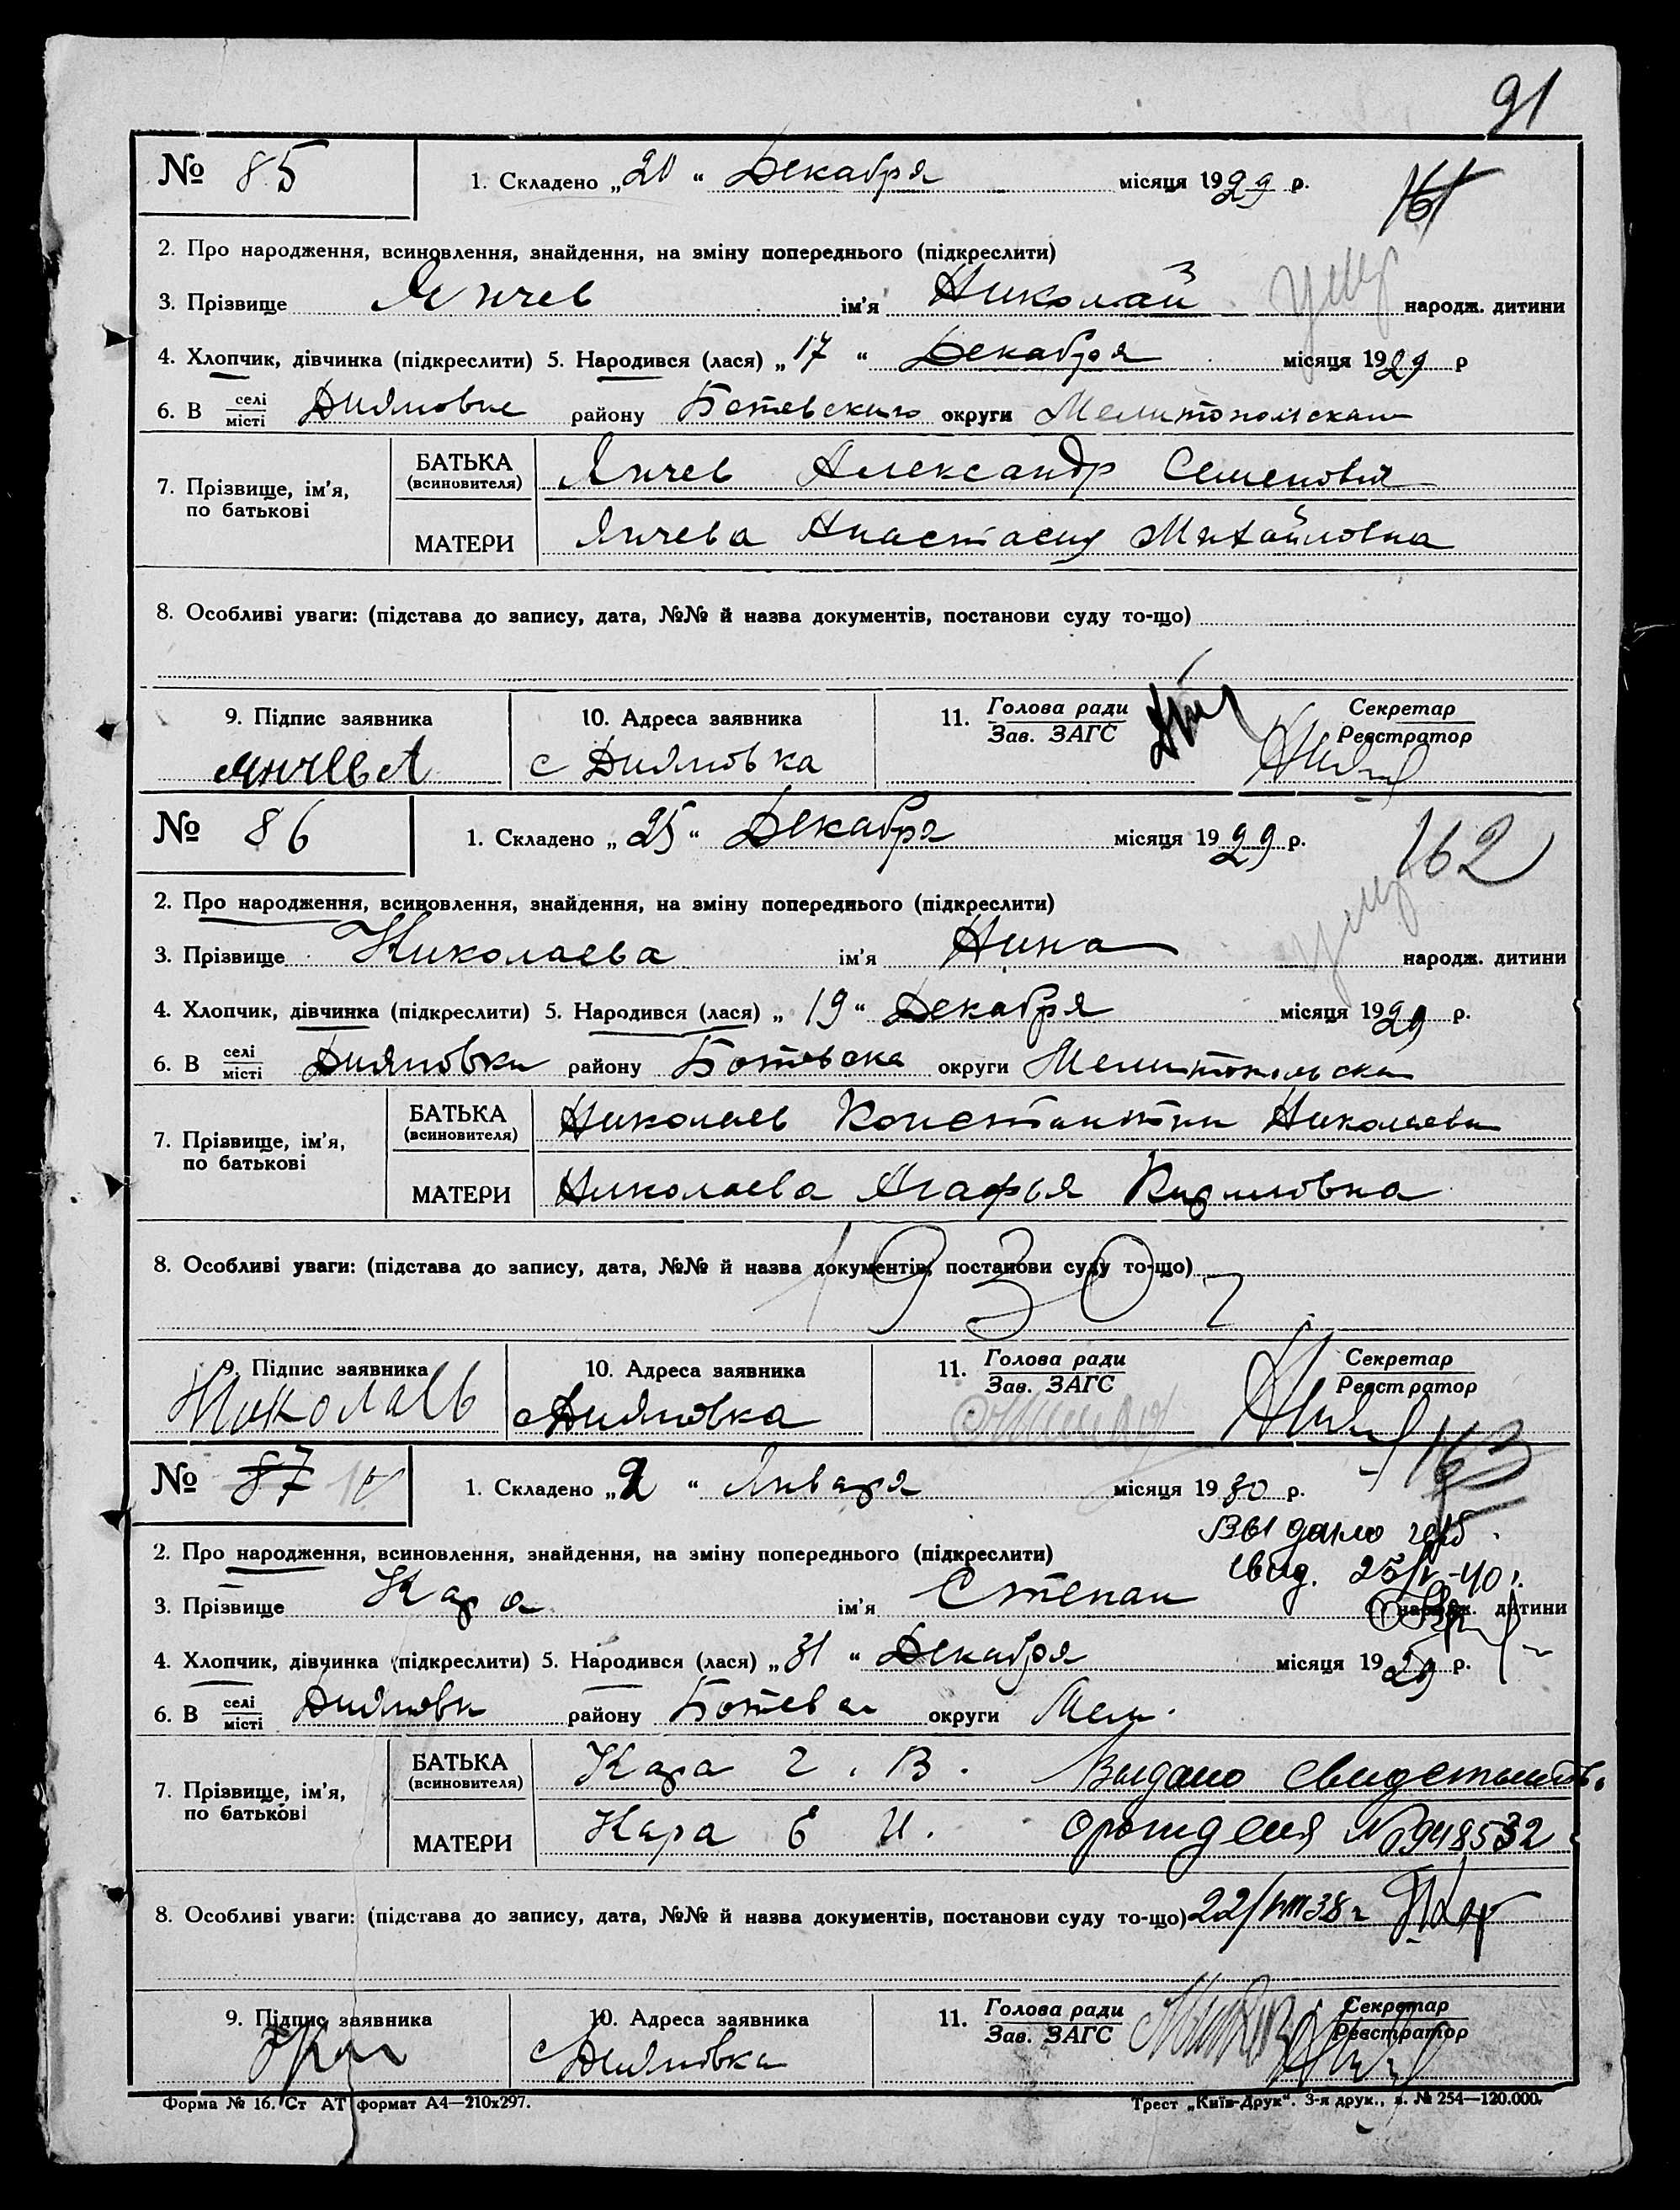 91
№ 85 1. Складено „20“ Декабря місяця 1929 р.
161
2. Про народження, всиновлення, знайдення, на зміну попереднього (підкреслити)
3. Прізвище Янчев ім'я Николай народж. дитини
умер
4. Хлопчик, дівчинка (підкреслити) 5. Народився (лася) „17“ Декабря місяця 1929 р
6. В селі/місті Дияновке району Ботевского округи
7. Прізвище, ім'я, по батькові
БАТЬКА (всиновителя) Янчев Александр Семенович
МАТЕРИ Янчева Анастасия Михайловна
8. Особливі уваги: (підстава до запису, дата, №№ й назва документів, постанови суду то-що)
9. Підпис заявника 10. Адреса заявника 11. Голова ради/Зав. ЗАГС Секретар/Реєстратор
Янчев А с Дияновка
№ 86 1. Складено „25“ Декабря місяця 1929 р.
162
2. Про народження, всиновлення, знайдення, на зміну попереднього (підкреслити)
умер
3. Прізвище Николаева ім'я Нина народж. дитини
4. Хлопчик, дівчинка (підкреслити) 5. Народився (лася) „19“ Декабря місяця 1929 р.
6. В селі/місті Дияновки району округи
7. Прізвище, ім'я, по батькові
БАТЬКА (всиновителя) Николаев Константин
МАТЕРИ Николаева Агафья
8. Особливі уваги: (підстава до запису, дата, №№ й назва документів, постанови суду то-що)
1930 г
9. Підпис заявника 10. Адреса заявника 11. Голова ради/Зав. ЗАГС Секретар/Реєстратор
Николаев с Дияновка
№ 87 1. Складено „2“ Января місяця 1930 р.
163
Выдано
2. Про народження, всиновлення, знайдення, на зміну попереднього (підкреслити)
свид. 25/V-40 г.
3. Прізвище Кара ім'я Степан народж. дитини
4. Хлопчик, дівчинка (підкреслити) 5. Народився (лася) „31“ Декабря місяця 1929 р.
6. В селі/місті району округи Мел.
7. Прізвище, ім'я, по батькові
БАТЬКА (всиновителя) Кара Г. В. Выдано
МАТЕРИ Кара Е И. № 948532
8. Особливі уваги: (підстава до запису, дата, №№ й назва документів, постанови суду то-що) 22/VIII 38 г
9. Підпис заявника 10. Адреса заявника 11. Голова ради/Зав. ЗАГС Секретар/Реєстратор
с Дияновка
Форма № 16. Ст АТ формат А4—210x297. Трест „Київ-Друк“. 3-я друк., з. № 254—120.000.